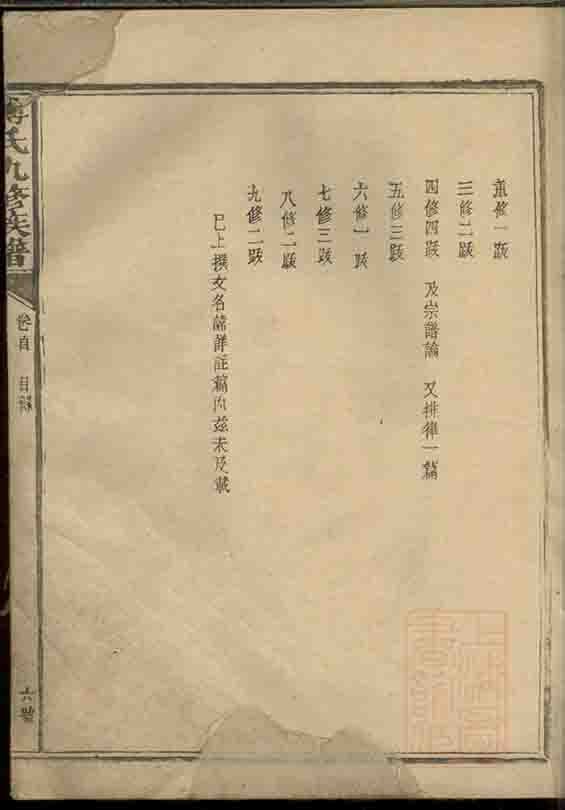 重修一跋
三修二跋
四修四跋 及宗譜論 又排律一篇
五修三跋
六修一跋
七修三跋
八修二跋
九修二跋
已上撰文名諱詳註篇內茲未及載
氏九修族譜
卷首 目錄
六號